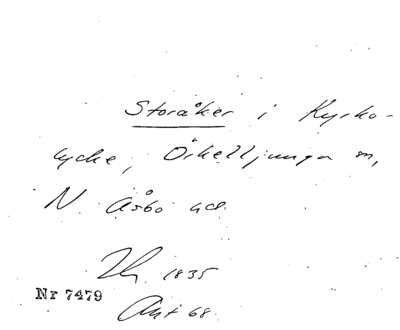 Storåker i Kyrko-
lycke, Örkelljunga sn,
N. Åsbo hd.
Lh. 1835
Nr 7479
Akt 68.